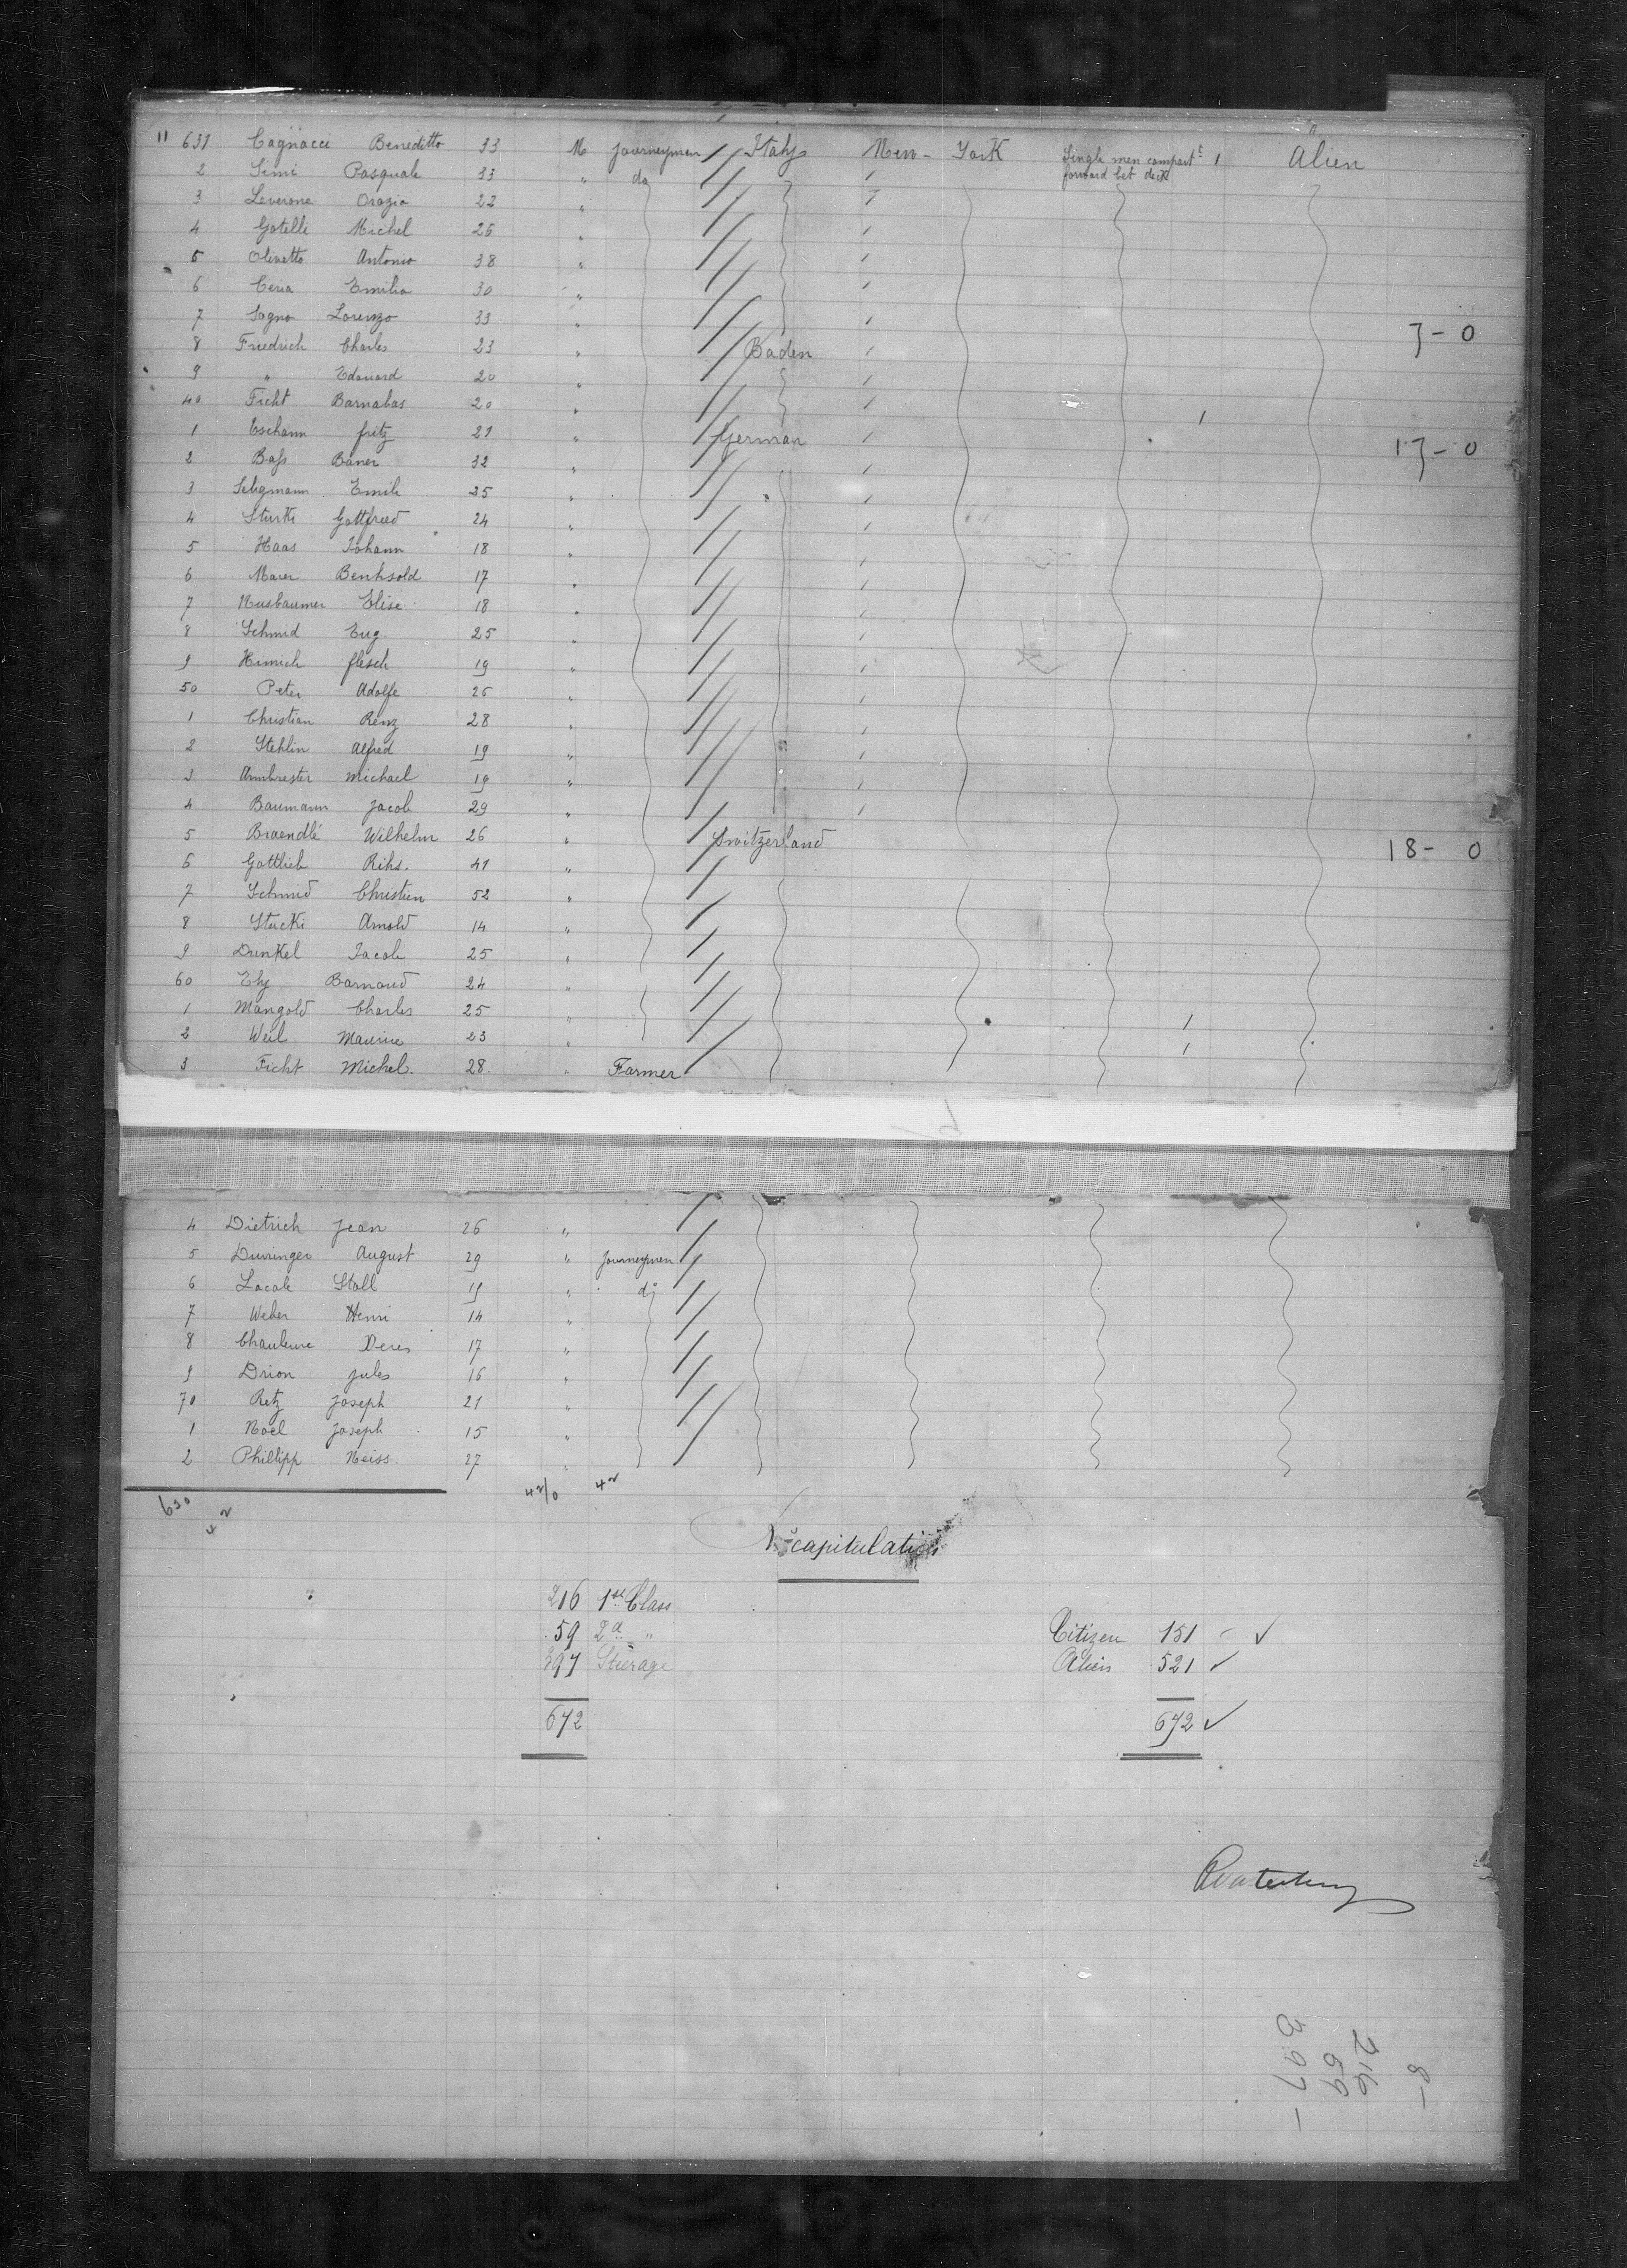 " 631 Cagnacci Beneditto 33 M Journeymen Italy New-York Single men compart^t 1 Alien
forward bet deck
2 Simi Pasquale 33 " do
3 Leverone Orazio 22 "
4 Gotelli Michel 26 "
5 Olivetto Antonio 38 "
6 Ceria Emilio 30 "
7 Sogno Lorenzo 33 " 7-0
8 Friedrich Charles 23 " Baden
9 " Edouard 20 "
40 Ficht Barnabas 20 " 1
1 Eschann fritz 29 " German 17-0
2 Bass Baner 32 "
3 Seligmann Emile 25 "
4 Sturki Gottfried 24 "
5 Haas Johann 18 "
6 Maier 17 "
7 Nusbaumer Elise 18 "
8 Schmid Eug. 25 "
9 Himich flesch 19 "
50 Peter Adolfe 26 "
1 Christian Renz 28 "
2 Stehlin Alfred 19 "
3 Ambrester Michael 19 "
4 Baumann Jacob 29 "
5 Braendlé Wilhelm 26 " Switzerland 18-0
6 Gottlieb Rihs. 41 "
7 Schmid Christien 52 "
8 Stucki Arnold 14 "
9 Dunkel Jacob 25 "
60 Ely Barnaud 24 "
1 Mangold Charles 25 " 1
2 Weil Maurice 23 " 1
3 Ficht Michel. 28 " Farmer
4 Dietrich Jean 26 "
5 Durringer August 29 " Journeymen
6 Lacob Stoll 19 " do
7 Weber Henri 14 "
8 17 "
9 Drion Jules 16 "
70 Retz Joseph 21 "
1 Noel Joseph 15 "
2 Phillipp Neiss. 27 "
630 42 42/0 42
Recapitulation
216 1st Class
59 2d " Citizen 151 ✓
397 Steerage Alien 521 ✓
672 672 ✓
216
59
397 -
8-